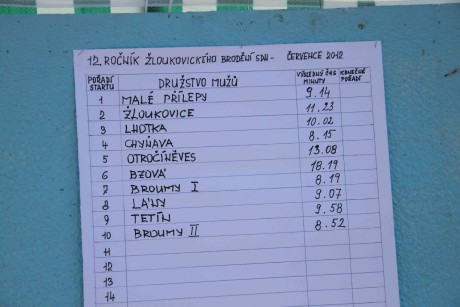 12. ROČNÍK ŽLOUKOVICKÉHO BRODĚNÍ SDH - ČERVENCE 2012
POŘADÍ STARTU DRUŽSTVO MUŽŮ VÝSLEDNÝ ČAS MINUTY KONEČNÉ POŘADÍ
1 MALÉ PŘÍLEPY 9.14
2 ŽLOUKOVICE 11.23
3 LHOTKA 10.02
4 CHYŇAVA 8.15
5 OTROČINĚVES 13.08
6 BZOVÁ 18.19
7 BROUMY I 8.19
8 LÁNY 9.07
9 TETÍN 9.58
10 BROUMY II 8.52
11
12
13
14